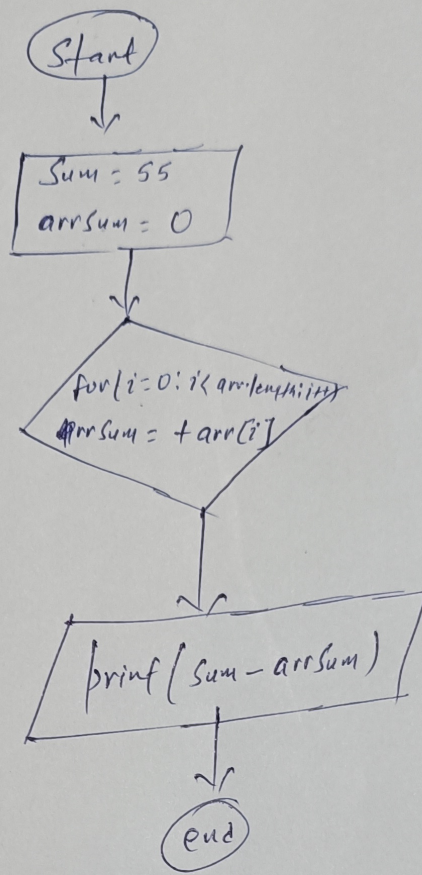 Start
Sum = 55
arrsum = 0
for(i=0; i<arr.length; i++)
arrsum = + arr[i]
prinf(sum-arrsum)
end